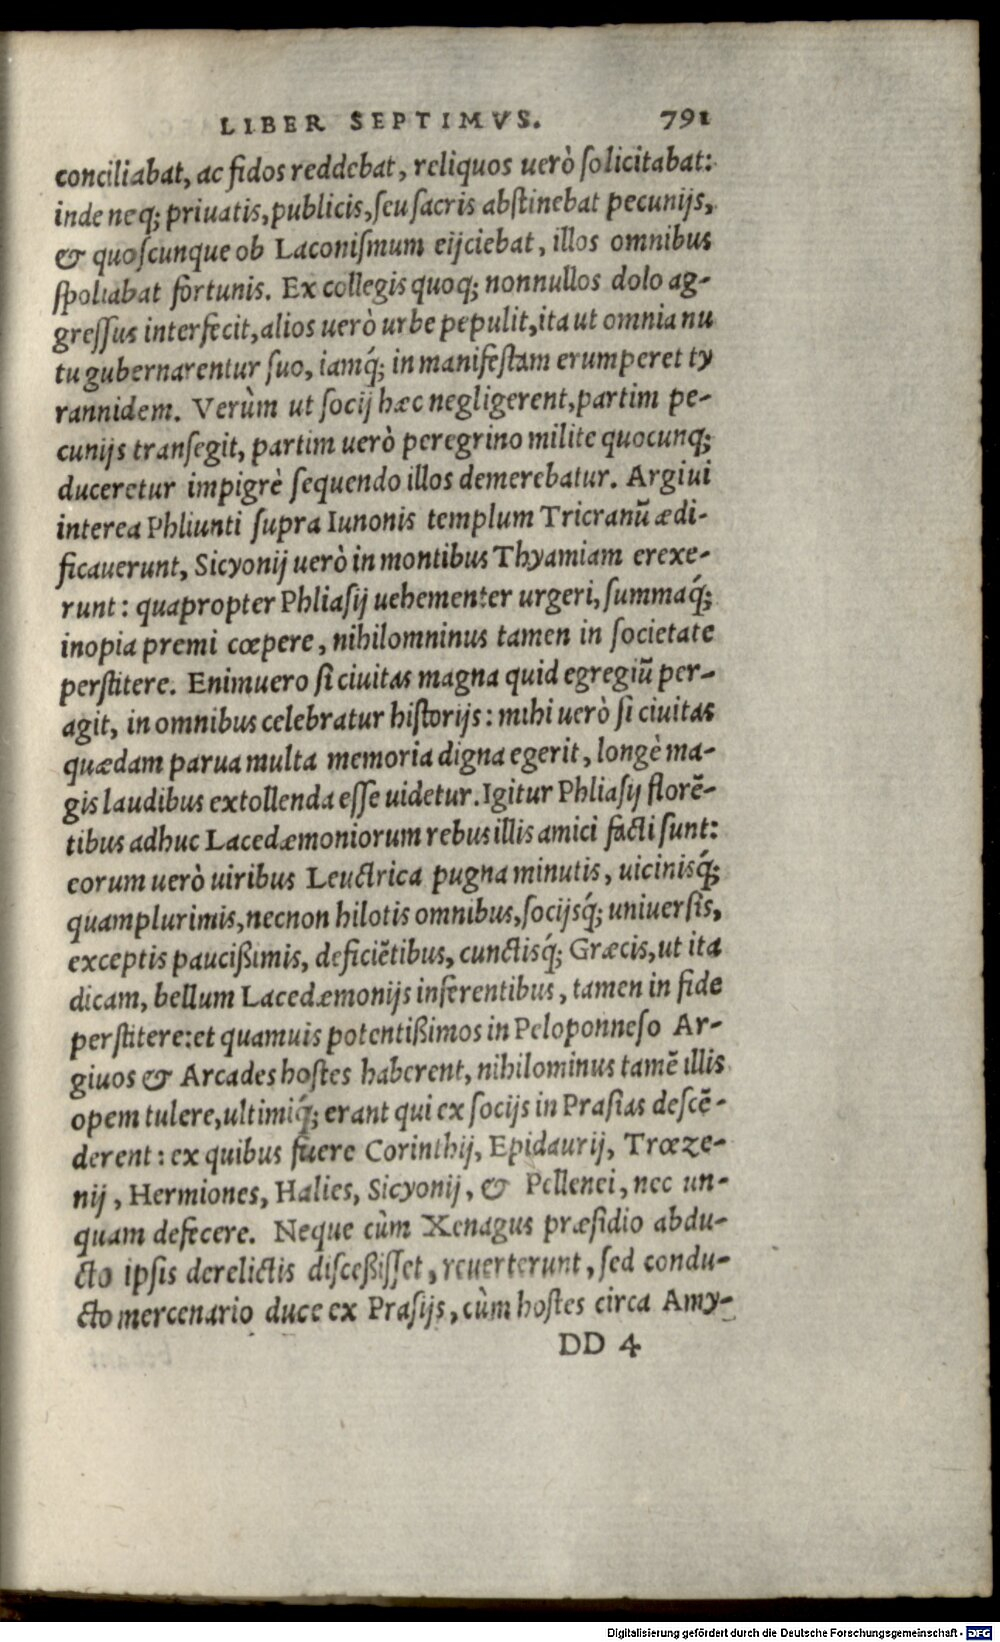 LIBER SEPTIMVS. 791
conciliabat, ac fidos reddebat, reliquos uerò ſolicitabat:
inde neq; priuatis, publicis, ſeu ſacris abſtinebat pecunijs,
& quoſcunque ob Laconiſmum eijciebat, illos omnibus
ſpoliabat fortunis. Ex collegis quoq; nonnullos dolo ag-
greſſus interfecit, alios uerò urbe pepulit, ita ut omnia nu
tu gubernarentur ſuo, iamq́; in manifeſtam erumperet ty
rannidem. Verùm ut ſocij hæc negligerent, partim pe-
cunijs tranſegit, partim uerò peregrino milite quocunq;
duceretur impigrè ſequendo illos demerebatur. Argiui
interea Phliunti ſupra Iunonis templum Tricranũ ædi-
ficauerunt, Sicyonij uerò in montibus Thyamiam erexe-
runt: quapropter Phliaſij uehementer urgeri, ſummaq́;
inopia premi cœpere, nihilomninus tamen in ſocietate
perſtitere. Enimuero ſi ciuitas magna quid egregiũ per-
agit, in omnibus celebratur hiſtorijs: mihi uerò ſi ciuitas
quædam parua multa memoria digna egerit, longè ma-
gis laudibus extollenda eſſe uidetur. Igitur Phliaſij florē-
tibus adhuc Lacedæmoniorum rebus illis amici facti ſunt:
eorum uerò uiribus Leuctrica pugna minutis, uicinisq́;
quamplurimis, necnon hilotis omnibus, ſocijsq́; uniuerſis,
exceptis pauciſſimis, deficiētibus, cunctisq́; Græcis, ut ita
dicam, bellum Lacedæmonijs inferentibus, tamen in fide
perſtitere: et quamuis potentißimos in Peloponneſo Ar-
giuos & Arcades hoſtes haberent, nihilominus tamē illis
opem tulere, ultimiq́; erant qui ex ſocijs in Praſias deſcē-
derent: ex quibus fuere Corinthij, Epidaurij, Trœze-
nij, Hermiones, Halies, Sicyonij, & Pellenei, nec un-
quam defecere. Neque cùm Xenagus præſidio abdu-
cto ipſis derelictis diſceßiſſet, reuerterunt, ſed condu-
cto mercenario duce ex Praſijs, cùm hoſtes circa Amy-
DD 4
Digitalisierung gefördert durch die Deutsche Forschungsgemeinschaft - DFG